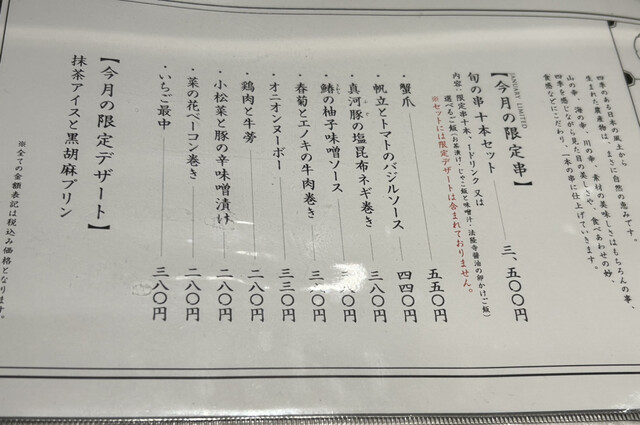 四季のある日本の風土から
生まれた農産物は、まさに自然の恵みです。
山の幸、海の幸、川の幸、素材の美味しさはもちろんの事、
四季を感じながら見た目の美しさや、食べあわせの妙、
食感などにこだわり、一本の串に仕上げていきます。
JANUARY LIMITED
【今月の限定串】
旬の串十本セット 三、五〇〇円
内容:限定串十本、1ドリンク又は
選べるご飯(お茶漬け、じゃこ飯と味噌汁、法隆寺醤油の卵かけご飯)
※セットには限定デザートは含まれておりません。
・蟹爪 五五〇円
・帆立とトマトのバジルソース 四四〇円
・真河豚の塩昆布ネギ巻き 三八〇円
・鰆の柚子味噌ソース
・春菊とエノキの牛肉巻き
・オニオンヌーボー 三三〇円
・鶏肉と牛蒡 二八〇円
・小松菜と豚の辛味噌漬け 二八〇円
・菜の花ベーコン巻き 二八〇円
・いちご最中 三八〇円
【今月の限定デザート】
抹茶アイスと黒胡麻プリン
※全ての金額表記は税込み価格となります。